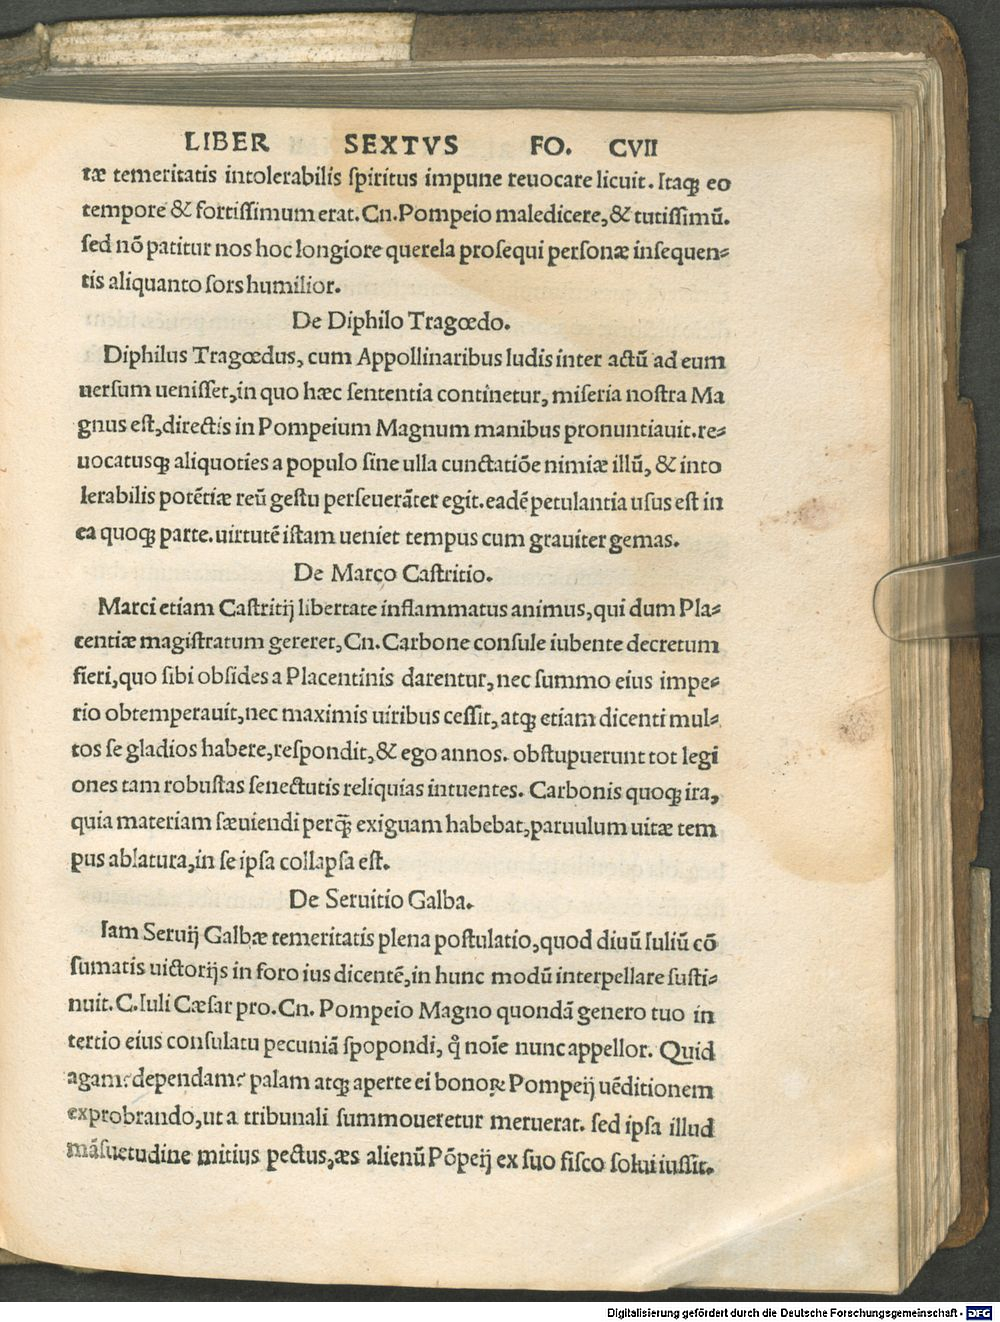 LIBER SEXTVS FO. CVII
tæ temeritatis intolerabilis ſpiritus impune reuocare licuit. Itaqꝫ eo
tempore & fortiſſimum erat. Cn. Pompeio maledicere, & tutiſſimū.
ſed nō patitur nos hoc longiore querela proſequi perſonæ inſequen⸗
tis aliquanto ſors humilior.
De Diphilo Tragœdo.
Diphilus Tragœdus, cum Appollinaribus ludis inter actū ad eum
uerſum ueniſſet, in quo hæc ſententia continetur, miſeria noſtra Ma
gnus eſt, directis in Pompeium Magnum manibus pronuntiauit. re⸗
uocatusqꝫ aliquoties a populo ſine ulla cunctatiōe nimiæ illū, & into
lerabilis potētiæ reū geſtu perſeuerāter egit. eadē petulantia uſus eſt in
ea quoqꝫ parte. uirtutē iſtam ueniet tempus cum grauiter gemas.
De Marco Caſtritio.
Marci etiam Caſtritij libertate inflammatus animus, qui dum Pla⸗
centiæ magiſtratum gereret, Cn. Carbone conſule iubente decretum
fieri, quo ſibi obſides a Placentinis darentur, nec ſummo eius impe⸗
rio obtemperauit, nec maximis uiribus ceſſit, atqꝫ etiam dicenti mul⸗
tos ſe gladios habere, reſpondit, & ego annos. obſtupuerunt tot legi
ones tam robuſtas ſenectutis reliquias intuentes. Carbonis quoqꝫ ira,
quia materiam ſæuiendi perq̄ exiguam habebat, paruulum uitæ tem
pus ablatura, in ſe ipſa collapſa eſt.
De Seruitio Galba.
Iam Seruij Galbæ temeritatis plena poſtulatio, quod diuū Iuliū cō
ſumatis uictorijs in foro ius dicentē, in hunc modū interpellare ſuſti⸗
nuit. C. Iuli Cæſar pro. Cn. Pompeio Magno quondā genero tuo in
tertio eius conſulatu pecuniā ſpopondi, q̊ noīe nunc appellor. Quid
agam? dependam? palam atqꝫ aperte ei bonoꝝ Pompeij uēditionem
exprobrando, ut a tribunali ſummoueretur meruerat. ſed ipſa illud
māſuetudine mitius pectus, æs alienū Pōpeij ex ſuo fiſco ſolui iuſſit.
Digitalisierung gefördert durch die Deutsche Forschungsgemeinschaft - DFG